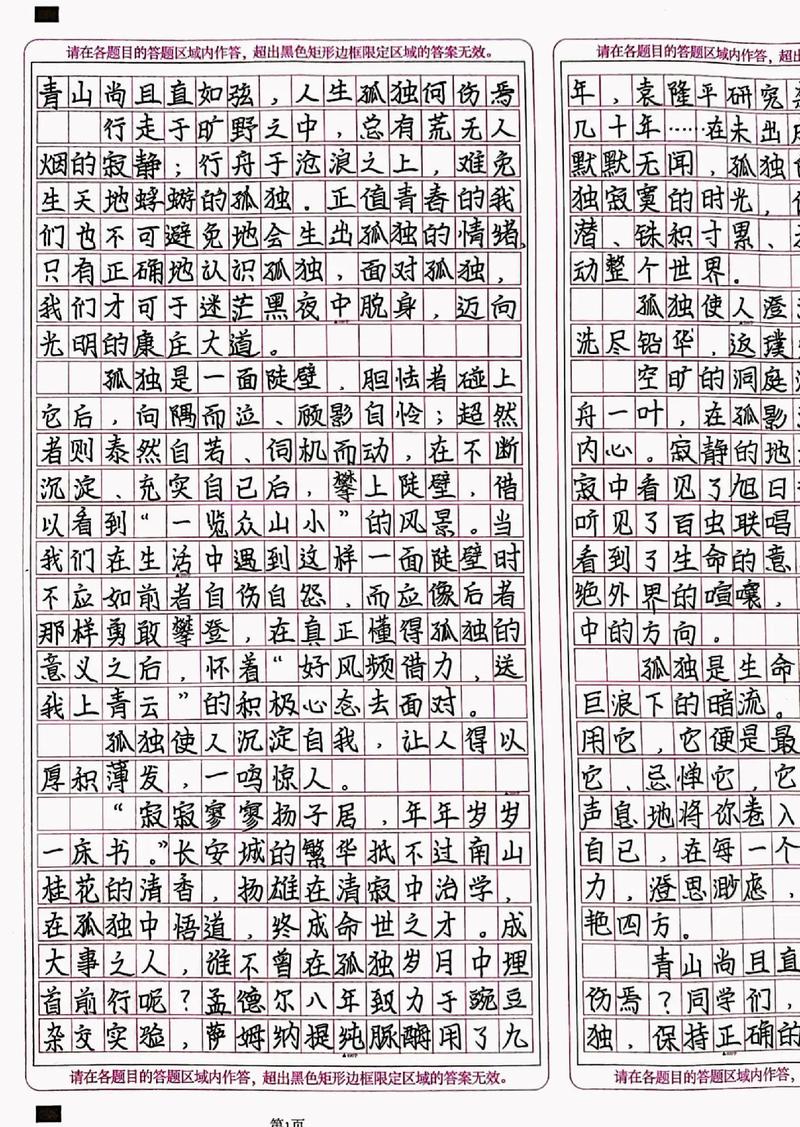 请在各题目的答题区域内作答，超出黑色矩形边框限定区域的答案无效。
青山尚且直如弦，人生孤独何伤焉
行走于旷野之中，总有荒无人
烟的寂静；行舟于沧浪之上，难免
生天地蜉蝣的孤独。正值青春的我
们也不可避免地会生出孤独的情绪，
只有正确地认识孤独，面对孤独，
我们才可于迷茫黑夜中脱身，迈向
光明的康庄大道。
孤独是一面陡壁，胆怯者碰上
它后，向隅而泣、顾影自怜；超然
者则泰然自若、伺机而动，在不断
沉淀、充实自己后，攀上陡壁，借
以看到“一览众山小”的风景。当
我们在生活中遇到这样一面陡壁时
不应如前者自伤自怨，而应像后者
那样勇敢攀登，在真正懂得孤独的
意义之后，怀着“好风频借力，送
我上青云”的积极心态去面对。
孤独使人沉淀自我，让人得以
厚积薄发，一鸣惊人。
“寂寂寥寥扬子居，年年岁岁
一床书。”长安城的繁华抵不过南山
桂花的清香，扬雄在清寂中治学，
在孤独中悟道，终成命世之才。成
大事之人，谁不曾在孤独岁月中埋
首前行呢？孟德尔八年致力于豌豆
杂交实验，萨姆纳提纯脲酶用了九
请在各题目的答题区域内作答，超出黑色矩形边框限定区域的答案无效。
第1页
请在各题目的答题区域内作答，超出
年，袁隆平研究
几十年……在未出
默默无闻，孤独
独寂寞的时光，
潜、铢积寸累、
动整个世界。
孤独使人澄
洗尽铅华，返璞
空旷的洞庭
舟一叶，在孤影
内心。寂静的地
寂中看见了旭日
听见了百虫联唱
看到了生命的意
绝外界的喧嚷，
中的方向。
孤独是生命
巨浪下的暗流。
用它，它便是最
它、忌惮它，它
声息地将你卷入
自己，在每一个
力，澄思渺虑，
艳四方。
青山尚且直
伤焉？同学们，
独，保持正确的
请在各题目的答题区域内作答，